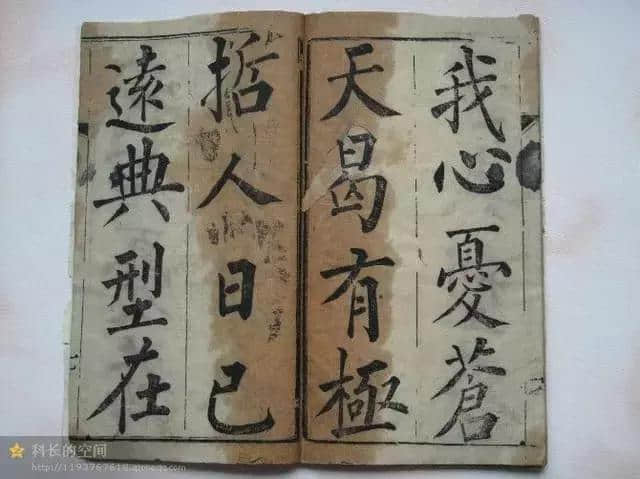 我心憂蒼
天曷有極
哲人日已
遠典型在
科长的空间